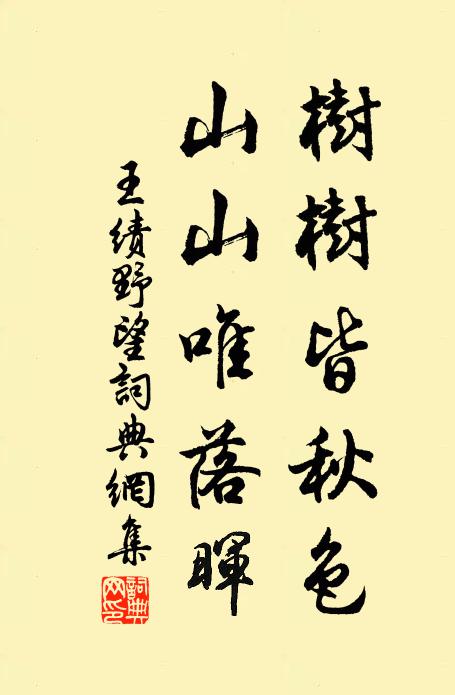 樹樹皆秋色
山山唯落暉
王績野望詞典網集
詞典網印